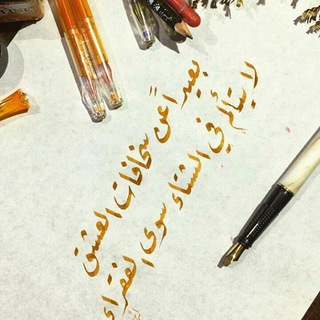 بعيداً عن سخافات العشق
لا يتألم في الشتاء سوى الفقراء